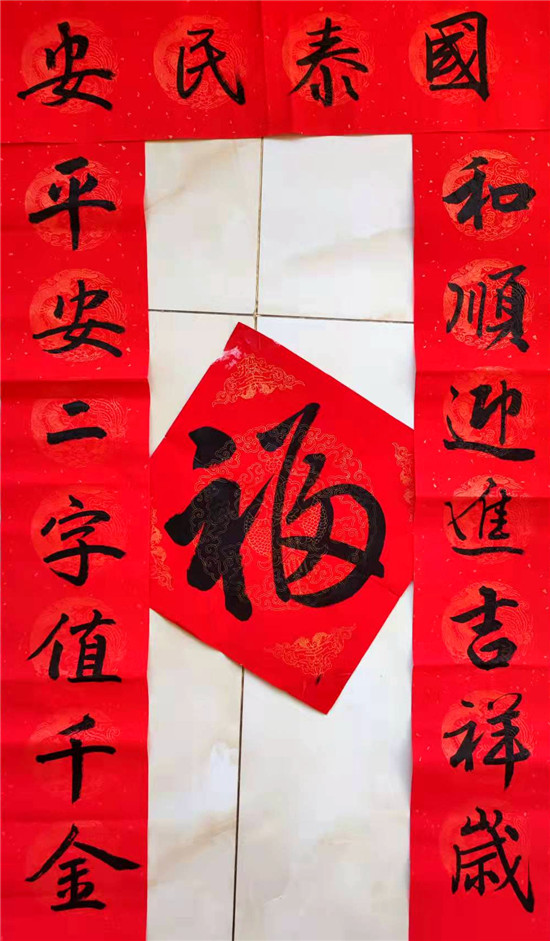 國泰民安
和順迎進吉祥歲
平安二字值千金
福